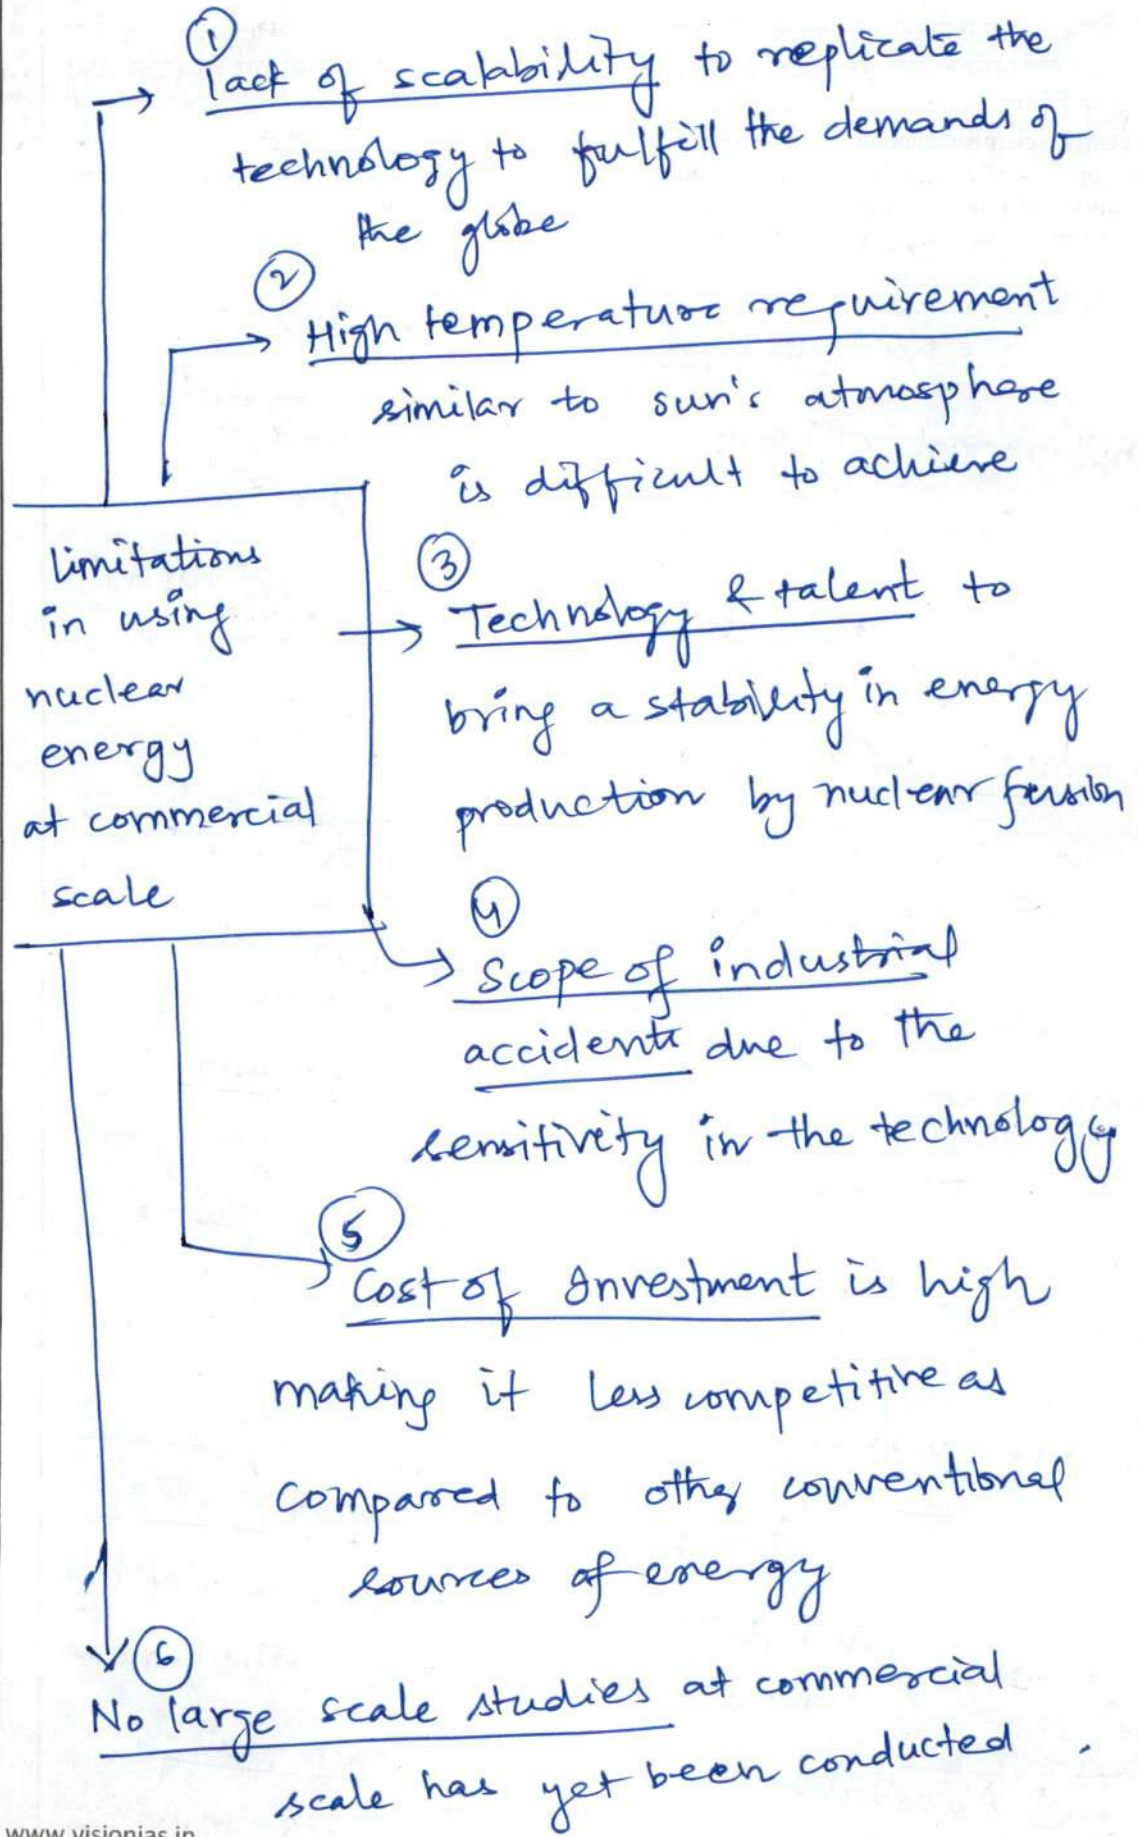 ①
lack of scalability to replicate the
technology to fulfill the demands of
the globe
②
High temperature requirement
similar to sun's atmosphere
is difficult to achieve
limitations
in using
nuclear
energy
at commercial
scale
③
Technology & talent to
bring a stability in energy
production by nuclear fusion
④
Scope of industrial
accidents due to the
sensitivity in the technology
⑤
Cost of Investment is high
making it less competitive as
compared to other conventional
sources of energy
⑥
No large scale studies at commercial
scale has yet been conducted.
www.visionias.in